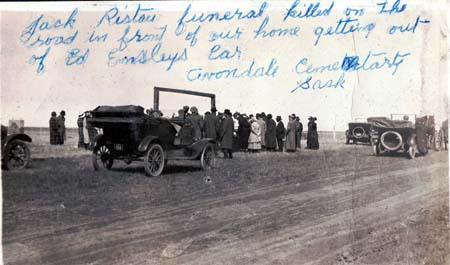 Jack Ristau funeral killed on The
road in front of our home getting out
of Ed Emsleys Car
Avondale Cemetstary
Sask